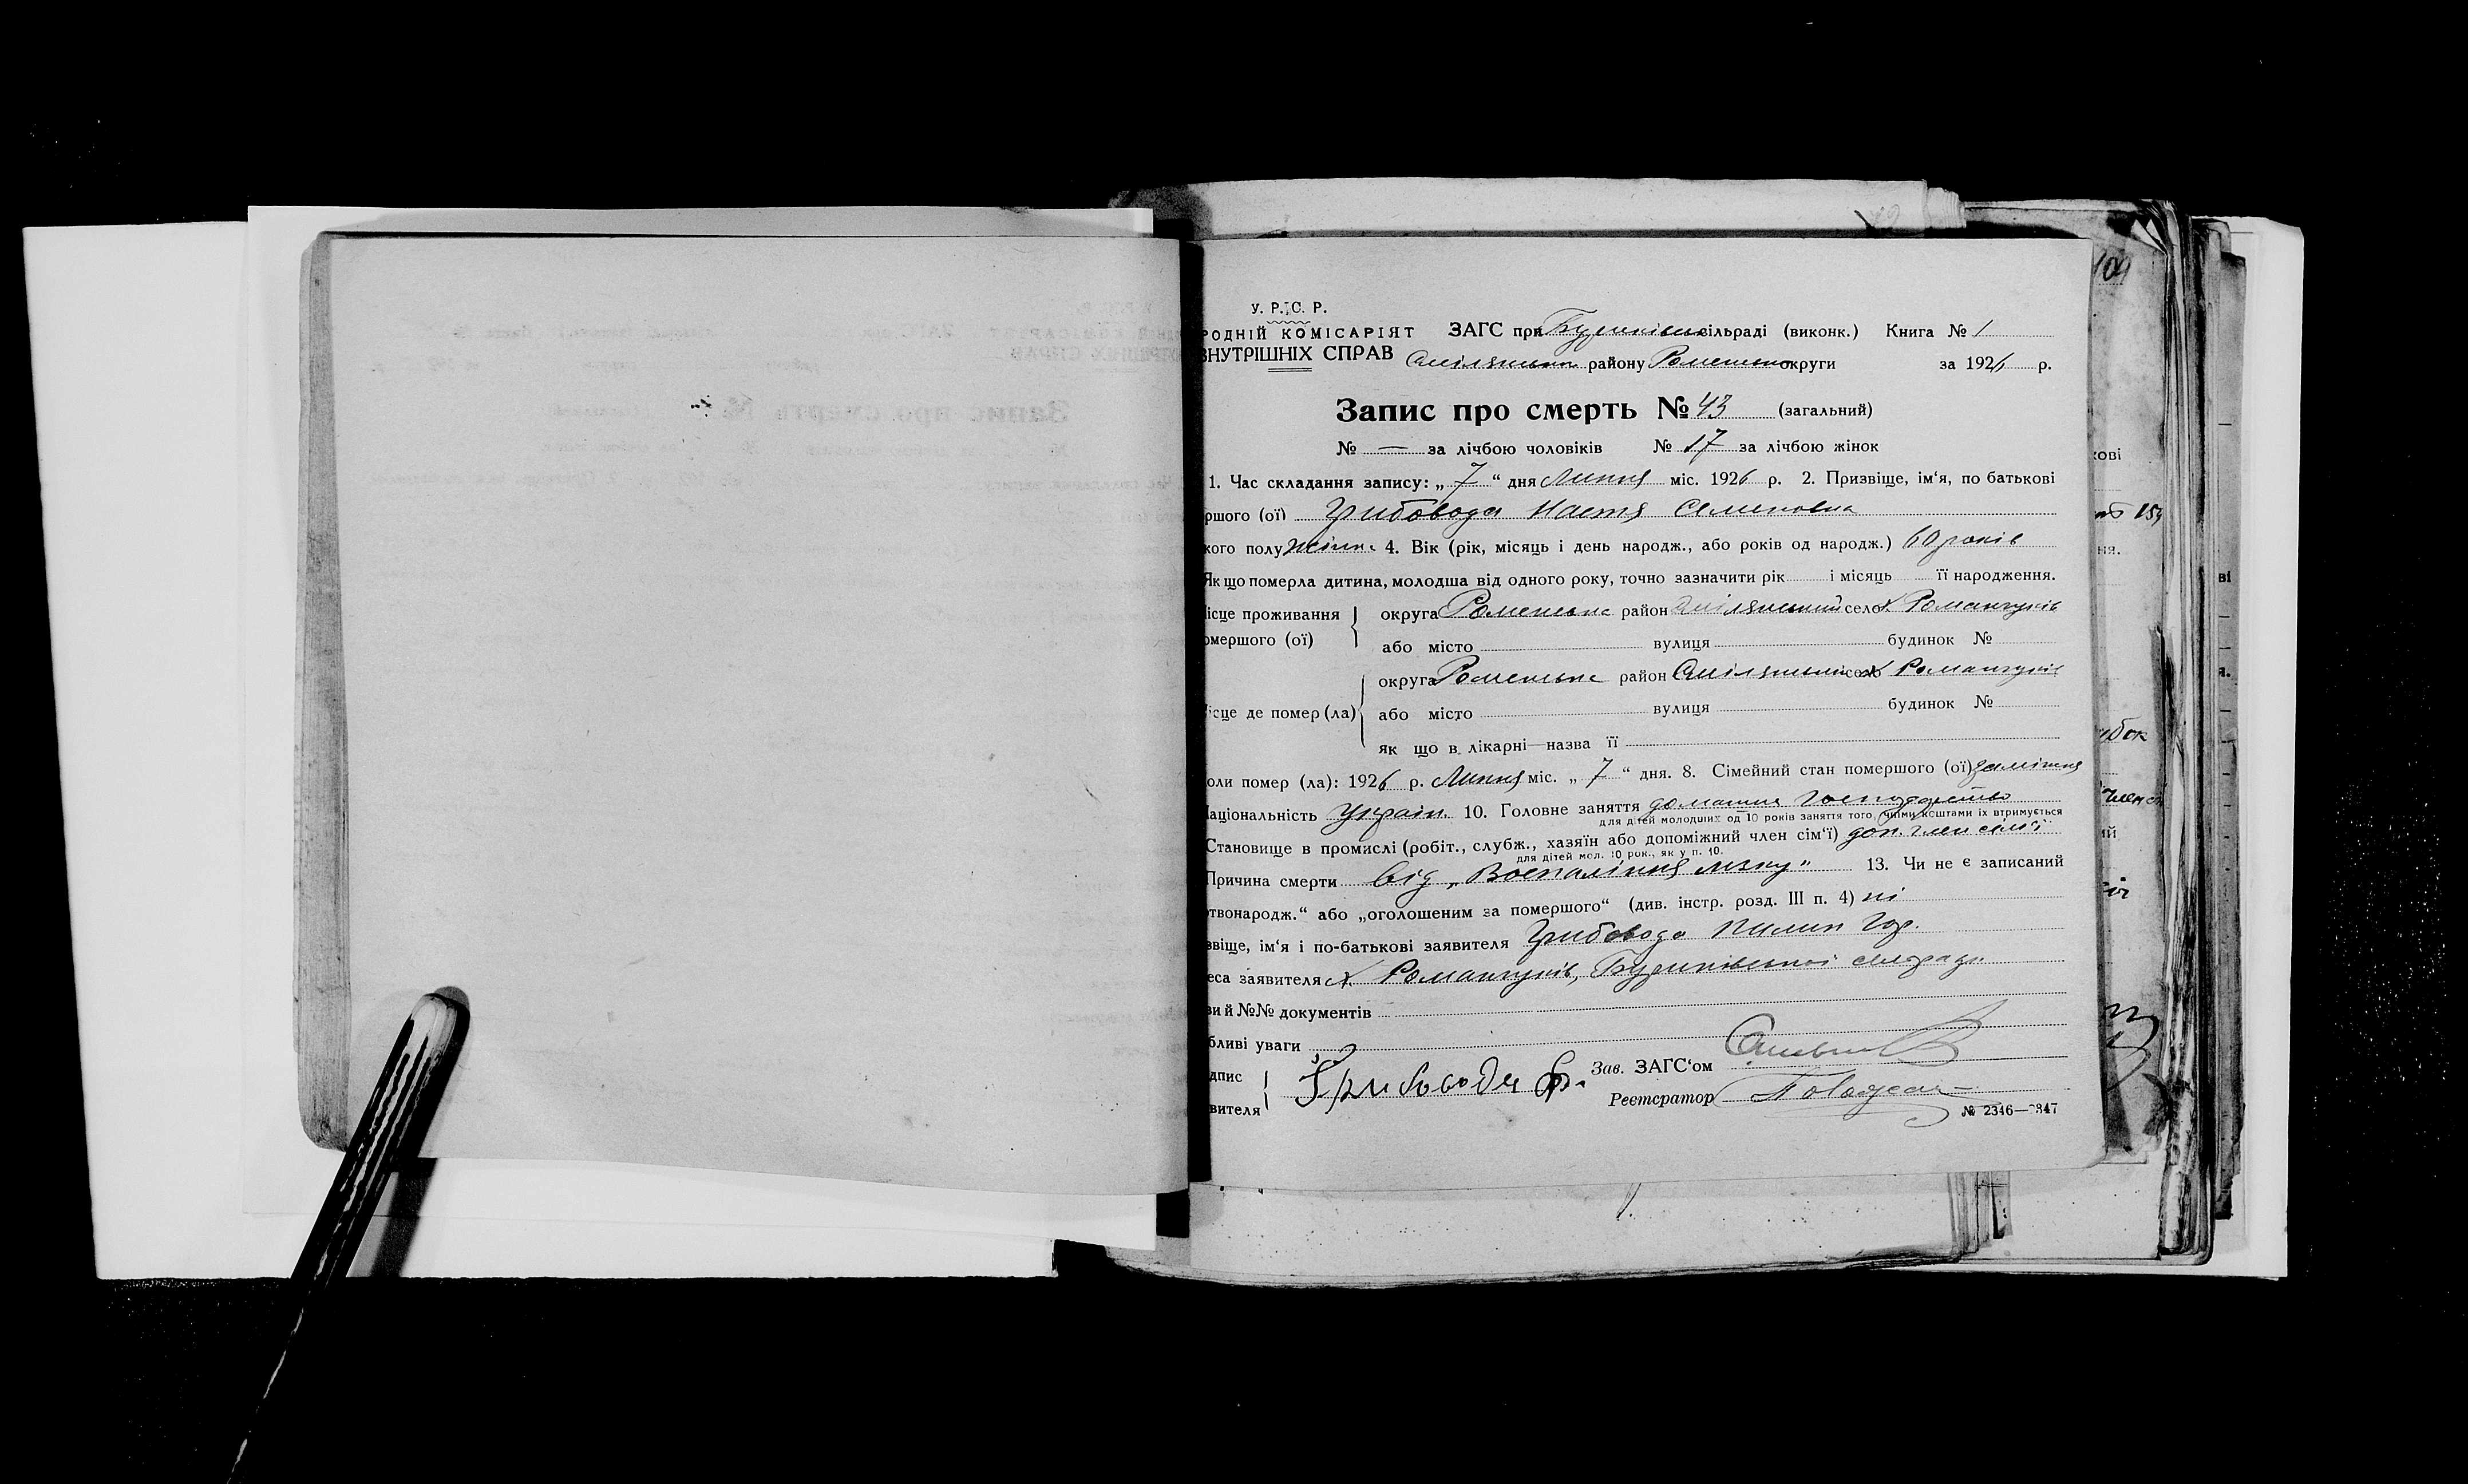 У. Р. С. Р.
РОДНІЙ КОМІСАРІЯТ ЗАГС при сільраді (виконк.) Книга № 1
ВНУТРІШНІХ СПРАВ району Роменської округи за 1926 р.
Запис про смерть № 43 (загальний)
№ — за лічбою чоловіків № 17 за лічбою жінок
1. Час складання запису: „ 7 “ дня Липня міс. 1926 р. 2. Призвіще, ім‘я, по батькові
ршого (ої) Грибовода Настя Семеновна
кого полу жіноч. 4. Вік (рік, місяць і день народж., або років од народж.) 60 років
Як що померла дитина, молодша від одного року, точно зазначити рік і місяць її народження.
ісце проживання округа Роменська район Смілянський село х Романчуків
омершого (ої) або місто вулиця будинок №
округа Роменська район Смілянський село х Романчуків
ісце де помер (ла) або місто вулиця будинок №
як що в лікарні—назва її
оли помер (ла): 1926 р. Липня міс. „ 7 “ дня. 8. Сімейний стан помершого (ої) заміжня
аціональність Україн. 10. Головне заняття домашнє господарство
для дітей молодших од 10 років заняття того, чиїми коштами їх втримується
Становище в промислі (робіт., служб., хазяїн або допоміжний член сім‘ї) доп. член сім'ї
для дітей мол. 10 рок., як у п. 10.
Причина смерти від „Воспаління мозку" 13. Чи не є записаний
ртвонародж.“ або „оголошеним за помершого“ (див. інстр. розд. III п. 4) ні
звіще, ім‘я і по-батькові заявителя Грибовода Пилип Гор.
еса заявителя х. Романчуків, сільради
ви й №№ документів
бливі уваги
дпис Грибовода Зав. ЗАГС‘ом
вителя Реєтсратор
№ 2346—2347